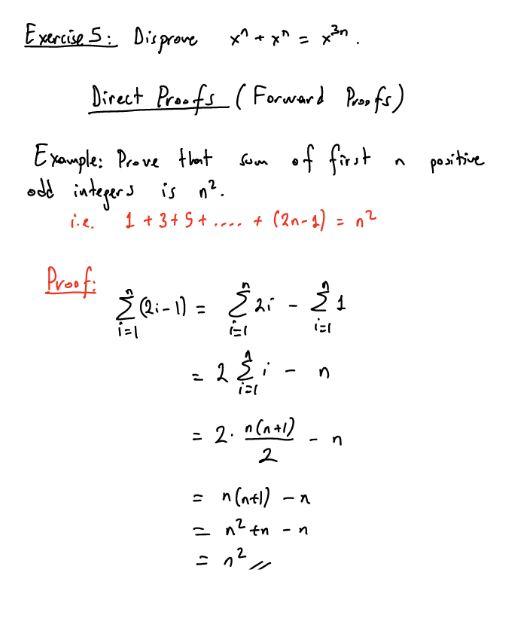 Exercise 5: Disprove xⁿ + xⁿ = x³ⁿ.
Direct Proofs (Forward Proofs)
Example: Prove that sum of first n positive
odd integers is n².
i.e. 1 + 3 + 5 + .... + (2n-1) = n²
Proof:
∑_{i=1}^{n} (2i-1) = ∑_{i=1}^{n} 2i - ∑_{i=1}^{n} 1
= 2 ∑_{i=1}^{n} i - n
= 2 · n(n+1)/2 - n
= n(n+1) - n
= n² + n - n
= n² //